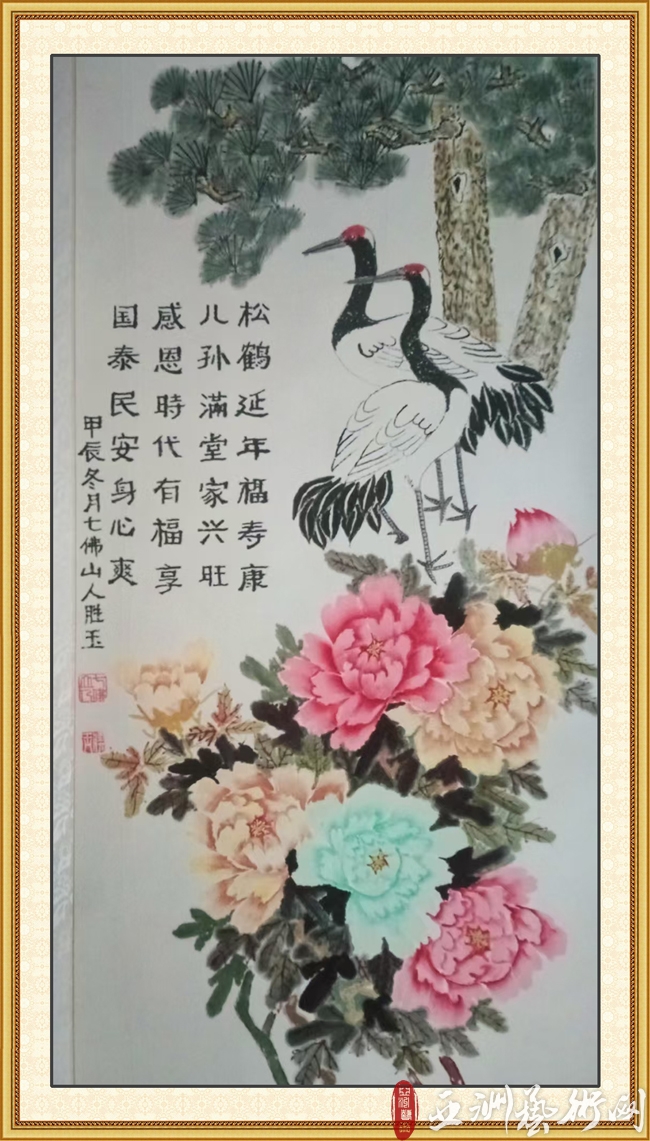 松鹤延年福寿康
儿孙满堂家兴旺
感恩時代有福享
国泰民安身心爽
甲辰冬月七佛山人胜玉
亚洲藝術网